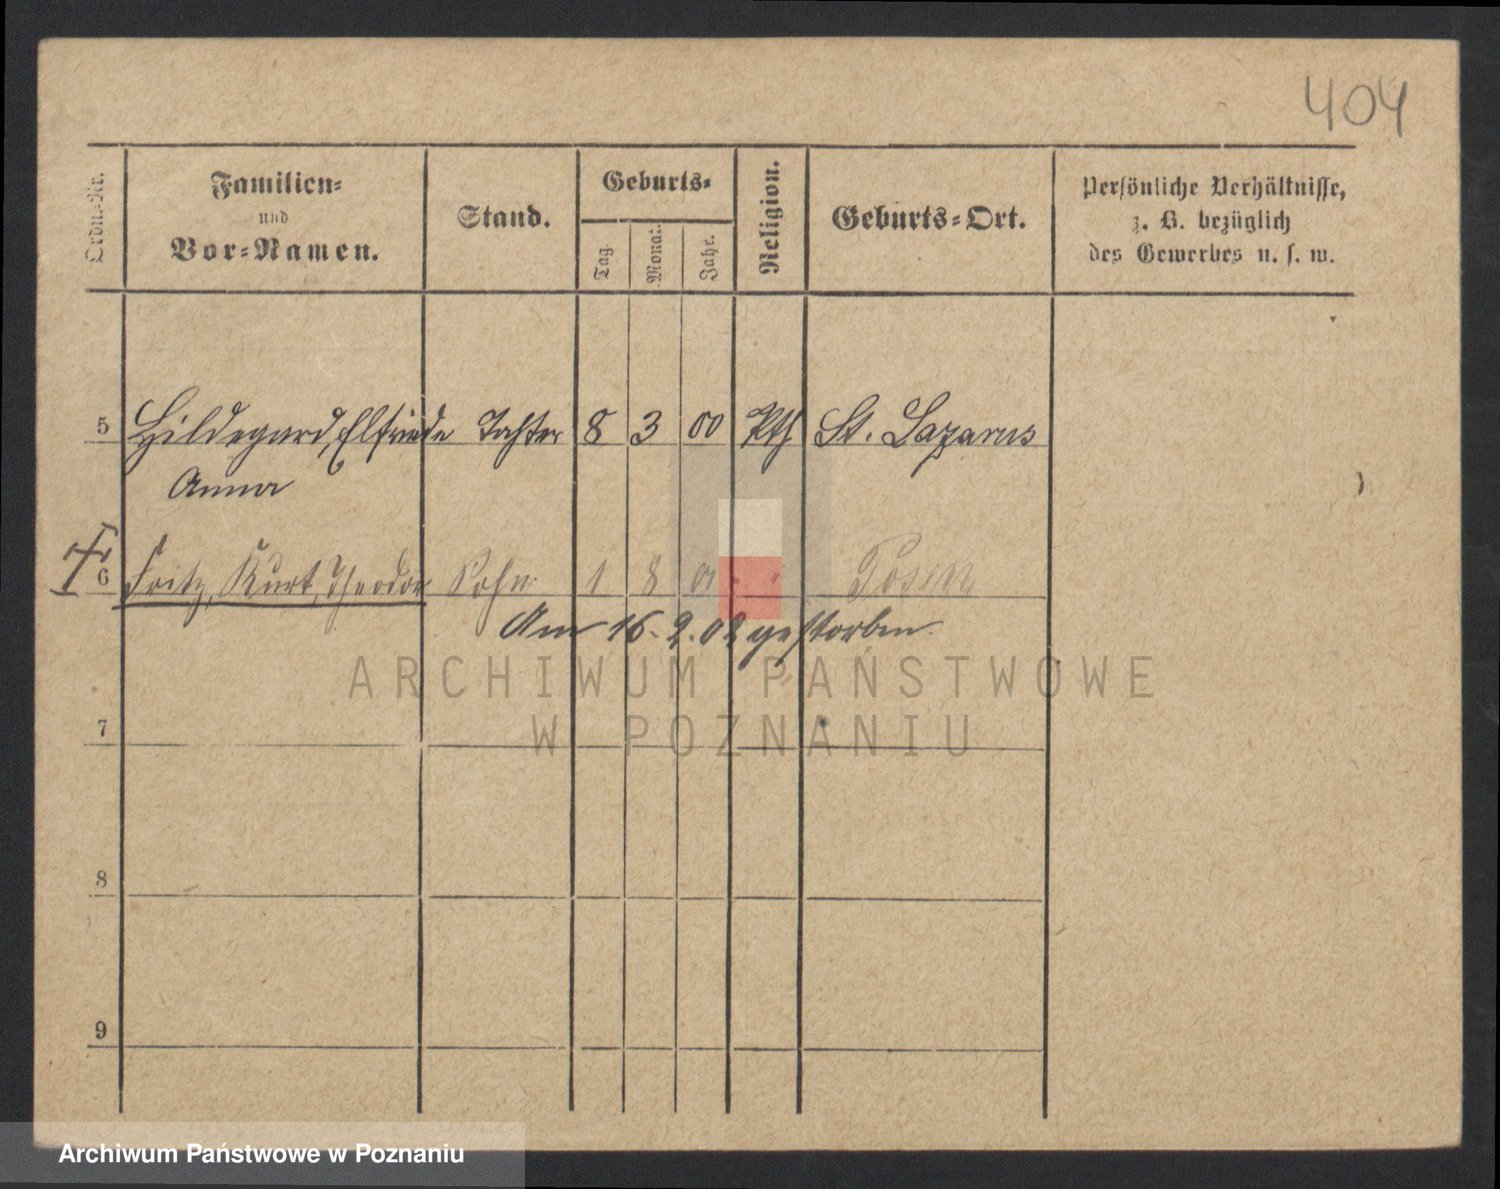 404
Ordn.-Nr.
Familien-
und
Vor-Namen.
Stand.
Geburts-
Tag.
Monat.
Jahr.
Religion.
Geburts-Ort.
Persönliche Verhältnisse,
z. B. bezüglich
des Gewerbes u. s. w.
5 Hildegard, Elfriede Tochter 8 3 00 Kth St. Lazarus
Anna
6 Fritz, Kurt, Theodor Sohn 1 8 01 " Posen
Am 16. 2. 02 gestorben.
ARCHIWUM PAŃSTWOWE
W POZNANIU
7
8
9
Archiwum Państwowe w Poznaniu